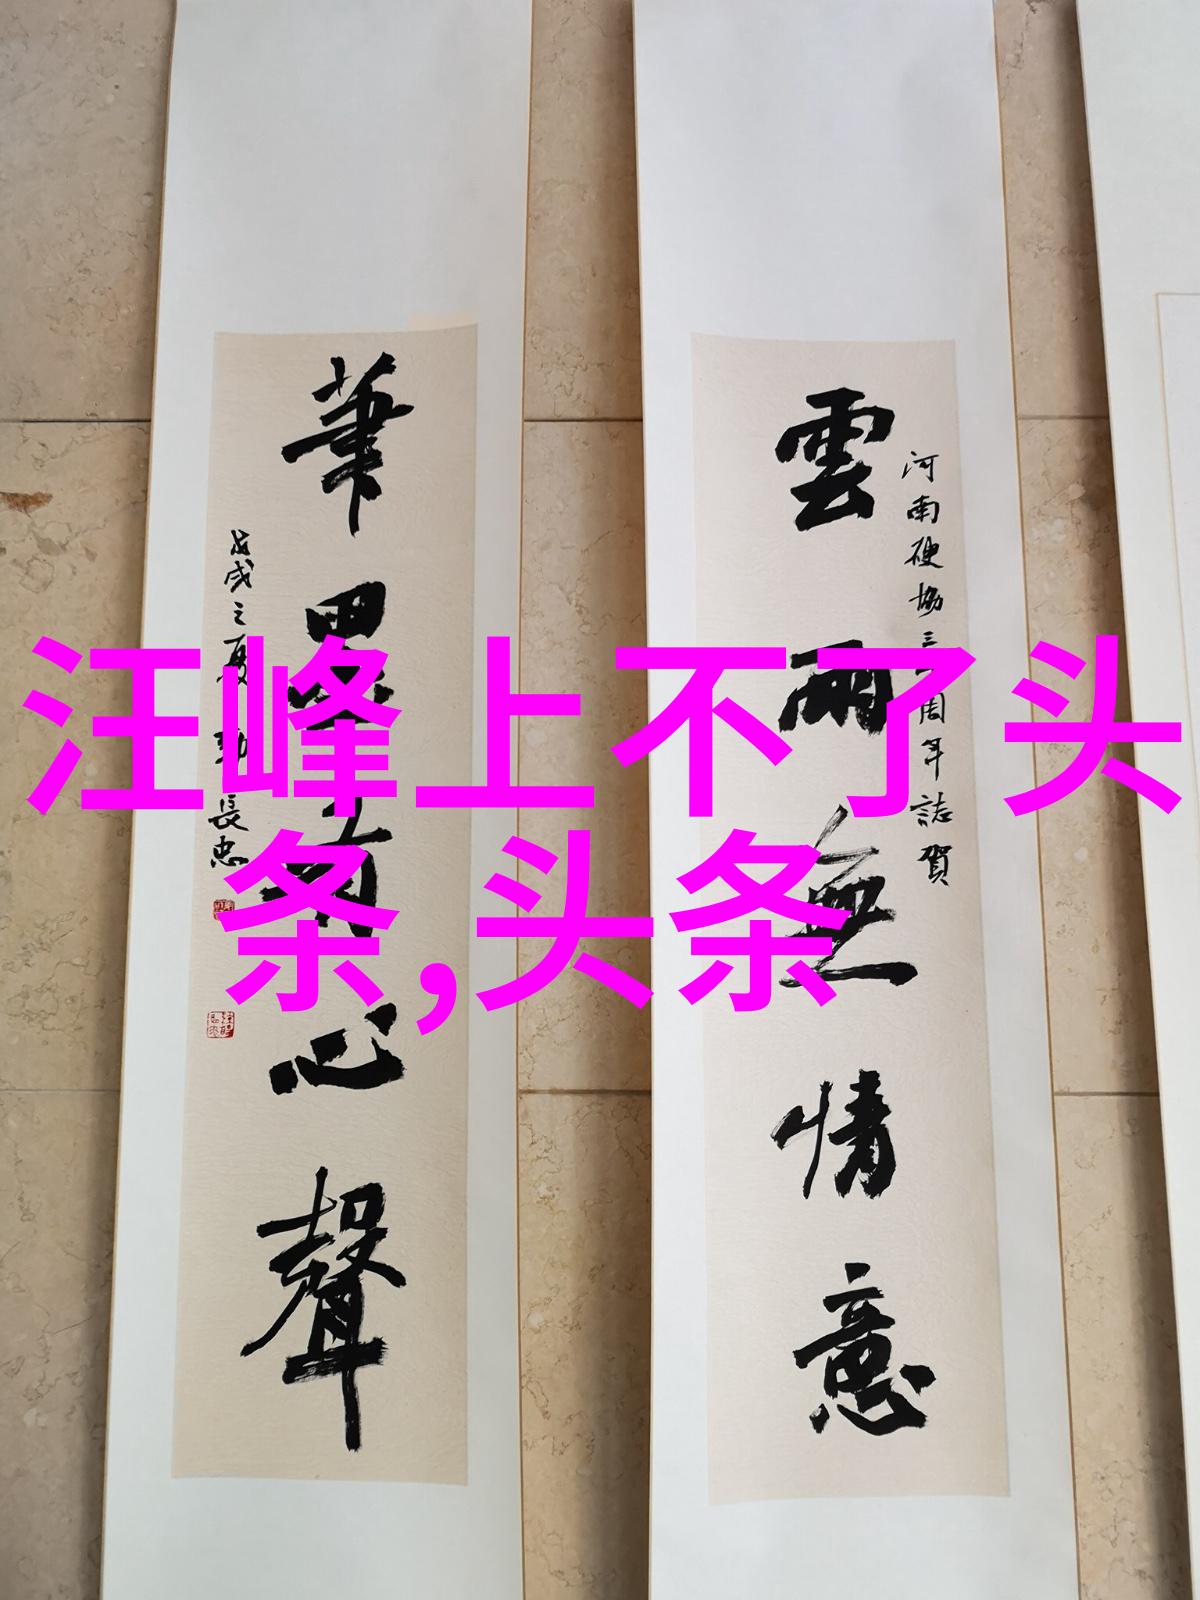 汪峰上不了头
条,头条
河南硬協三十周年誌賀
雲雨無情意
筆墨有心聲
戊戌之夏 長忠